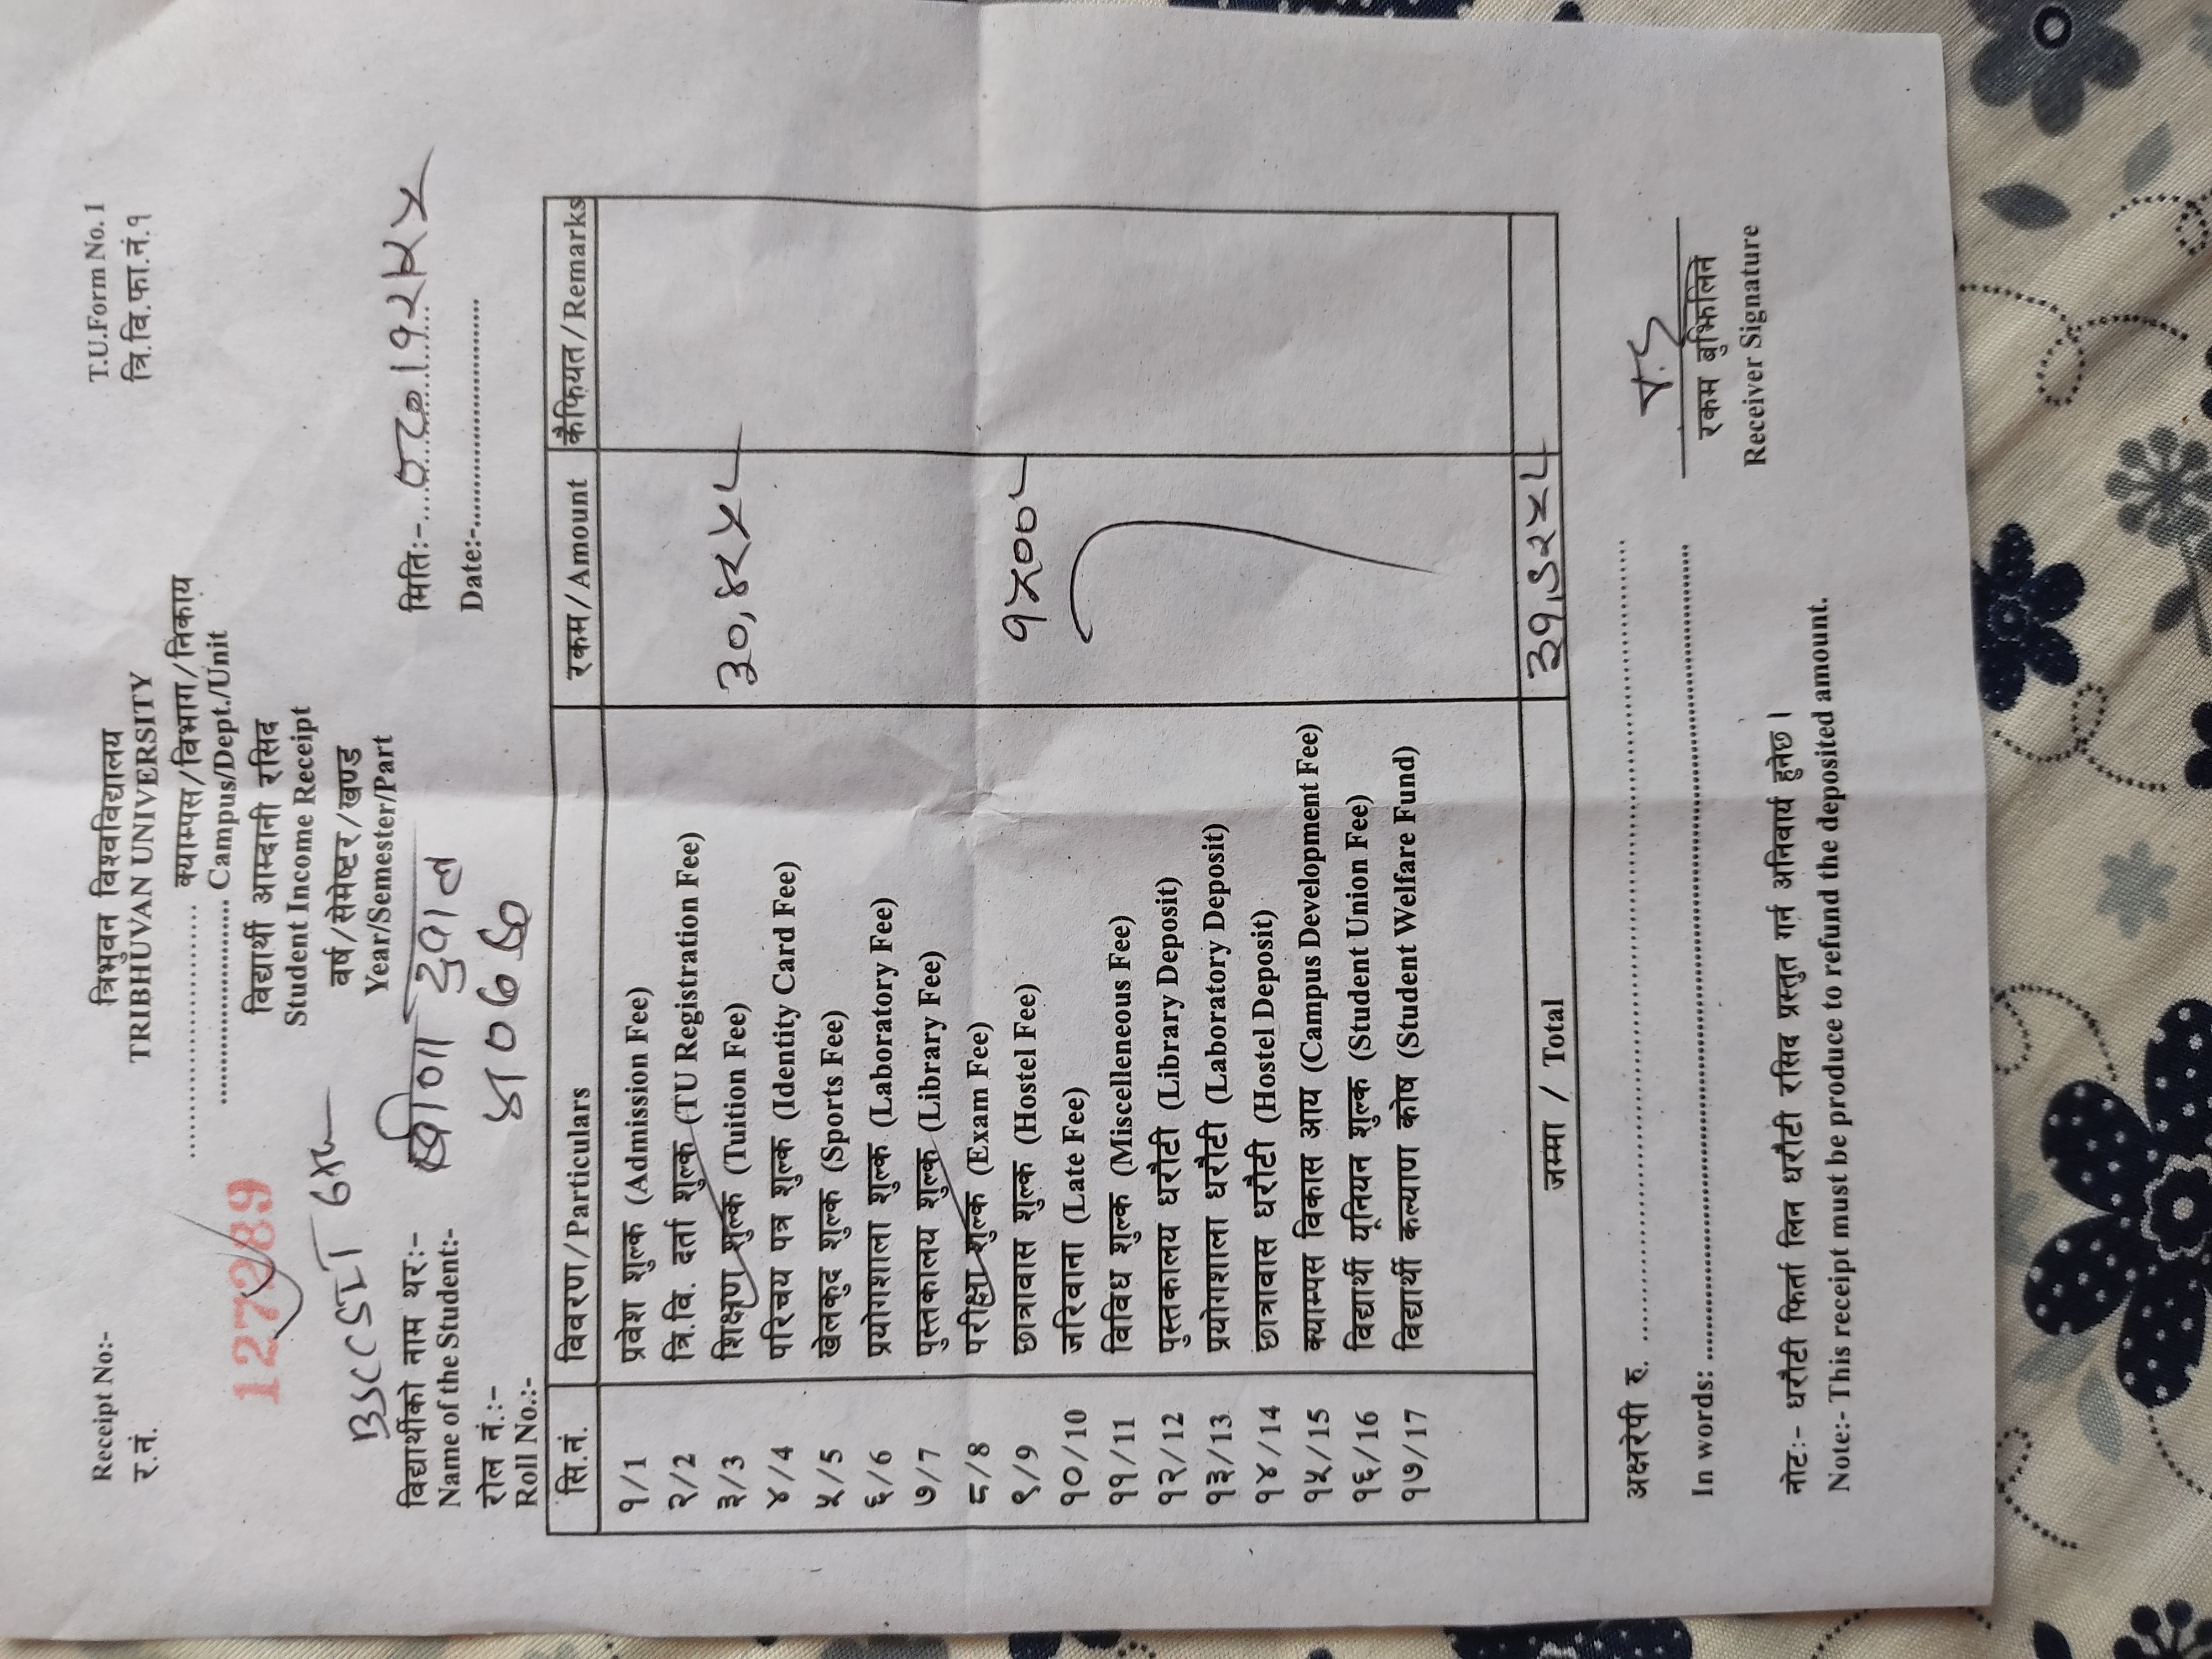 Receipt No:-
र.नं.
त्रिभुवन विश्वविद्यालय
TRIBHUVAN UNIVERSITY
........................... क्याम्पस/विभाग/निकाय
........................... Campus/Dept./Unit
T.U.Form No. 1
त्रि.वि.फा.नं.१
127289
विद्यार्थी आम्दानी रसिद
Student Income Receipt
BSCCSIT
वर्ष/सेमेष्टर/खण्ड
Year/Semester/Part
विद्यार्थीको नाम थरः-
Name of the Student:-
मितिः-
Date:-............................
रोल नं.:-
Roll No.:-
सि.नं. विवरण/Particulars रकम/Amount कैफियत/Remarks
१/1 प्रवेश शुल्क (Admission Fee)
२/2 त्रि.वि. दर्ता शुल्क (TU Registration Fee)
३/3 शिक्षण शुल्क (Tuition Fee) ३०,४२५
४/4 परिचय पत्र शुल्क (Identity Card Fee)
५/5 खेलकुद शुल्क (Sports Fee)
६/6 प्रयोगशाला शुल्क (Laboratory Fee)
७/7 पुस्तकालय शुल्क (Library Fee)
८/8 परीक्षा शुल्क (Exam Fee)
९/9 छात्रावास शुल्क (Hostel Fee) १५००
१०/10 जरिवाना (Late Fee)
११/11 विविध शुल्क (Miscelleneous Fee)
१२/12 पुस्तकालय धरौटी (Library Deposit)
१३/13 प्रयोगशाला धरौटी (Laboratory Deposit)
१४/14 छात्रावास धरौटी (Hostel Deposit)
१५/15 क्याम्पस विकास आय (Campus Development Fee)
१६/16 विद्यार्थी यूनियन शुल्क (Student Union Fee)
१७/17 विद्यार्थी कल्याण कोष (Student Welfare Fund)
जम्मा / Total ३१,९२५
अक्षरेपी रु. ........................................
In words: ........................................
रकम बुझिलिने
Receiver Signature
नोटः- धरौटी फिर्ता लिन धरौटी रसिद प्रस्तुत गर्न अनिवार्य हुनेछ ।
Note:- This receipt must be produce to refund the deposited amount.